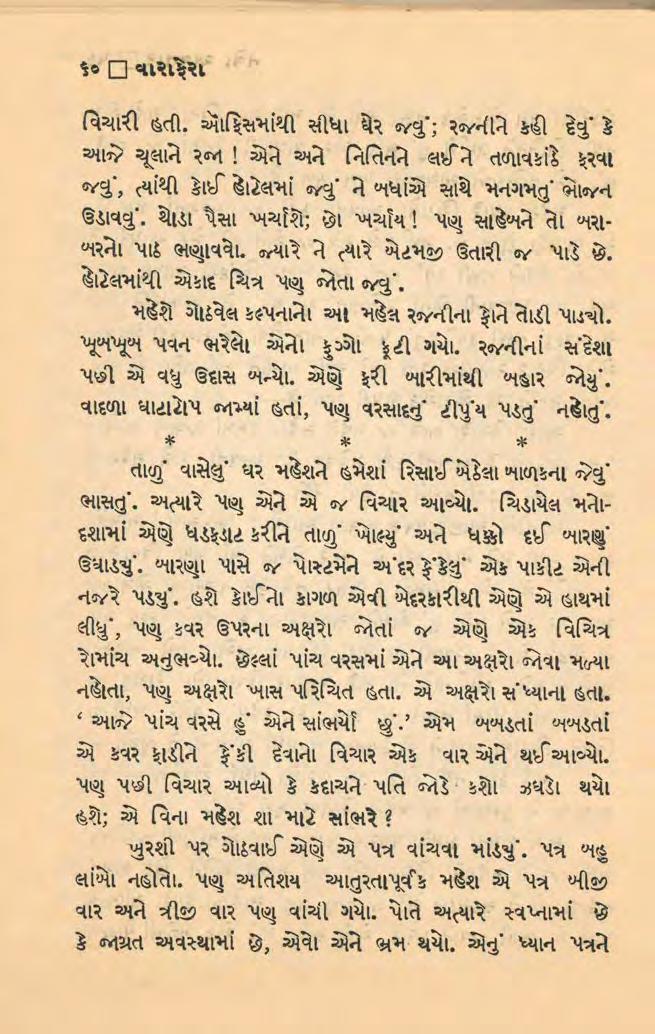 ૬૦ □ વારાફેરા
વિચારી હતી. ઑફિસમાંથી સીધા ઘેર જવું; રજનીને કહી દેવું કે
આજે ચૂલાને રજા ! એને અને નિતિનને લઈને તળાવકાંઠે ફરવા
જવું, ત્યાંથી કોઈ હોટેલમાં જવું ને બધાંએ સાથે મનગમતું ભોજન
ઉડાવવું. થોડા પૈસા ખર્ચાશે; છો ખર્ચાય ! પણ સાહેબને તો બરા-
બરનો પાઠ ભણાવવો. જ્યારે ને ત્યારે એટમજી ઉતારી જ પાડે છે.
હોટેલમાંથી એકાદ ચિત્ર પણ જોતા જવું.
મહેશે ગોઠવેલ કલ્પનાનો આ મહેલ રજનીના ફોને તોડી પાડ્યો.
ખૂબખૂબ પવન ભરેલો એનો ફુગ્ગો ફૂટી ગયો. રજનીનાં સંદેશા
પછી એ વધુ ઉદાસ બન્યો. એણે ફરી બારીમાંથી બહાર જોયું.
વાદળા ઘાટાટોપ જામ્યાં હતાં, પણ વરસાદનું ટીપુંય પડતું નહોતું.
* * *
તાળું વાસેલું ઘર મહેશને હમેશાં રિસાઈ બેઠેલા બાળકના જેવું
ભાસતું. અત્યારે પણ એને એ જ વિચાર આવ્યો. ચિડાયેલ મનો-
દશામાં એણે ધડફડાટ કરીને તાળું ખોલ્યું અને ધક્કો દઈ બારણું
ઉઘાડયું. બારણા પાસે જ પોસ્ટમેને અંદર ફેંકેલું એક પાકીટ એની
નજરે પડયું. હશે કોઈનો કાગળ એવી બેદરકારીથી એણે એ હાથમાં
લીધું, પણ કવર ઉપરના અક્ષરો જોતાં જ એણે એક વિચિત્ર
રોમાંચ અનુભવ્યો. છેલ્લાં પાંચ વરસમાં એને આ અક્ષરો જોવા મળ્યા
નહોતા, પણ અક્ષરો ખાસ પરિચિત હતા. એ અક્ષરો સંધ્યાના હતા.
‘ આજે પાંચ વરસે હું એને સાંભર્યો છું.’ એમ બબડતાં બબડતાં
એ કવર ફાડીને ફેંકી દેવાનો વિચાર એક વાર એને થઈ આવ્યો.
પણ પછી વિચાર આવ્યો કે કદાચને પતિ જોડે કશો ઝઘડો થયો
હશે; એ વિના મહેશ શા માટે સાંભરે ?
ખુરશી પર ગોઠવાઈ એણે એ પત્ર વાંચવા માંડયું. પત્ર બહુ
લાંબો નહોતો. પણ અતિશય આતુરતાપૂર્વક મહેશ એ પત્ર બીજી
વાર અને ત્રીજી વાર પણ વાંચી ગયો. પોતે અત્યારે સ્વપ્નામાં છે
કે જાગ્રત અવસ્થામાં છે, એવો એને ભ્રમ થયો. એનું ધ્યાન પત્રને